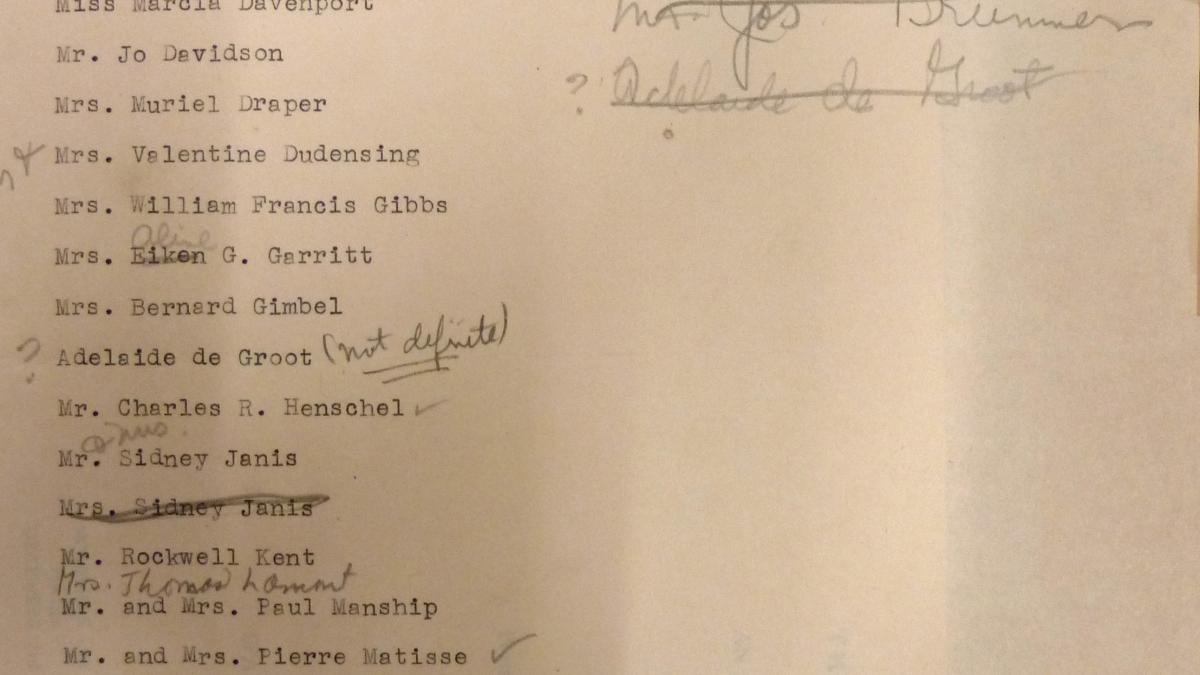 Miss Marcia Davenport
Mr. Jo Davidson
Mrs. Muriel Draper
Mrs. Valentine Dudensing
Mrs. William Francis Gibbs
Aline
Mrs. Eiken G. Garritt
Mrs. Bernard Gimbel
? Adelaide de Groot (not definite)
Mr. Charles R. Henschel ✓
& Mrs.
Mr. Sidney Janis
Mrs. Sidney Janis
Mr. Rockwell Kent
Mrs. Thomas Lamont
Mr. and Mrs. Paul Manship
Mr. and Mrs. Pierre Matisse ✓
Mr. Jos Brummer
? Adelaide de Groot